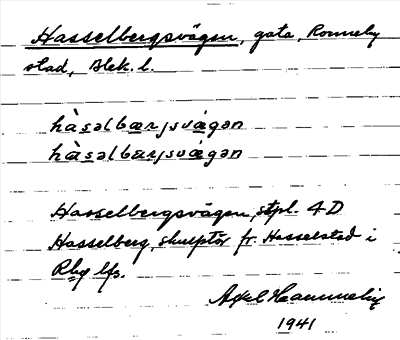 Hasselbergsvägen, gata, Ronneby
stad, Blek. l.
hàsəlbærjsvägən
hàsəlbærjsvägən
Hasselbergsvägen, stpl. 4D
Hasselberg, skulptör fr. Hasselstad i
Rby lfs.
Axel
1941